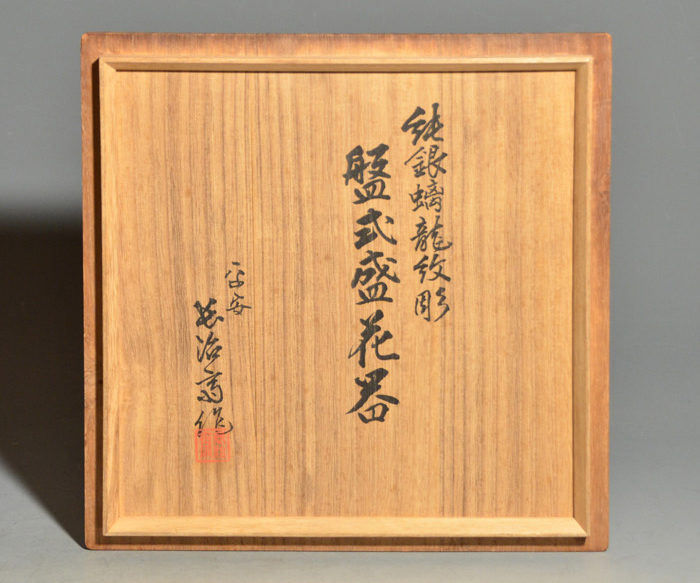 純銀螭龍紋彫
盤式盛花器
平安
治斎作